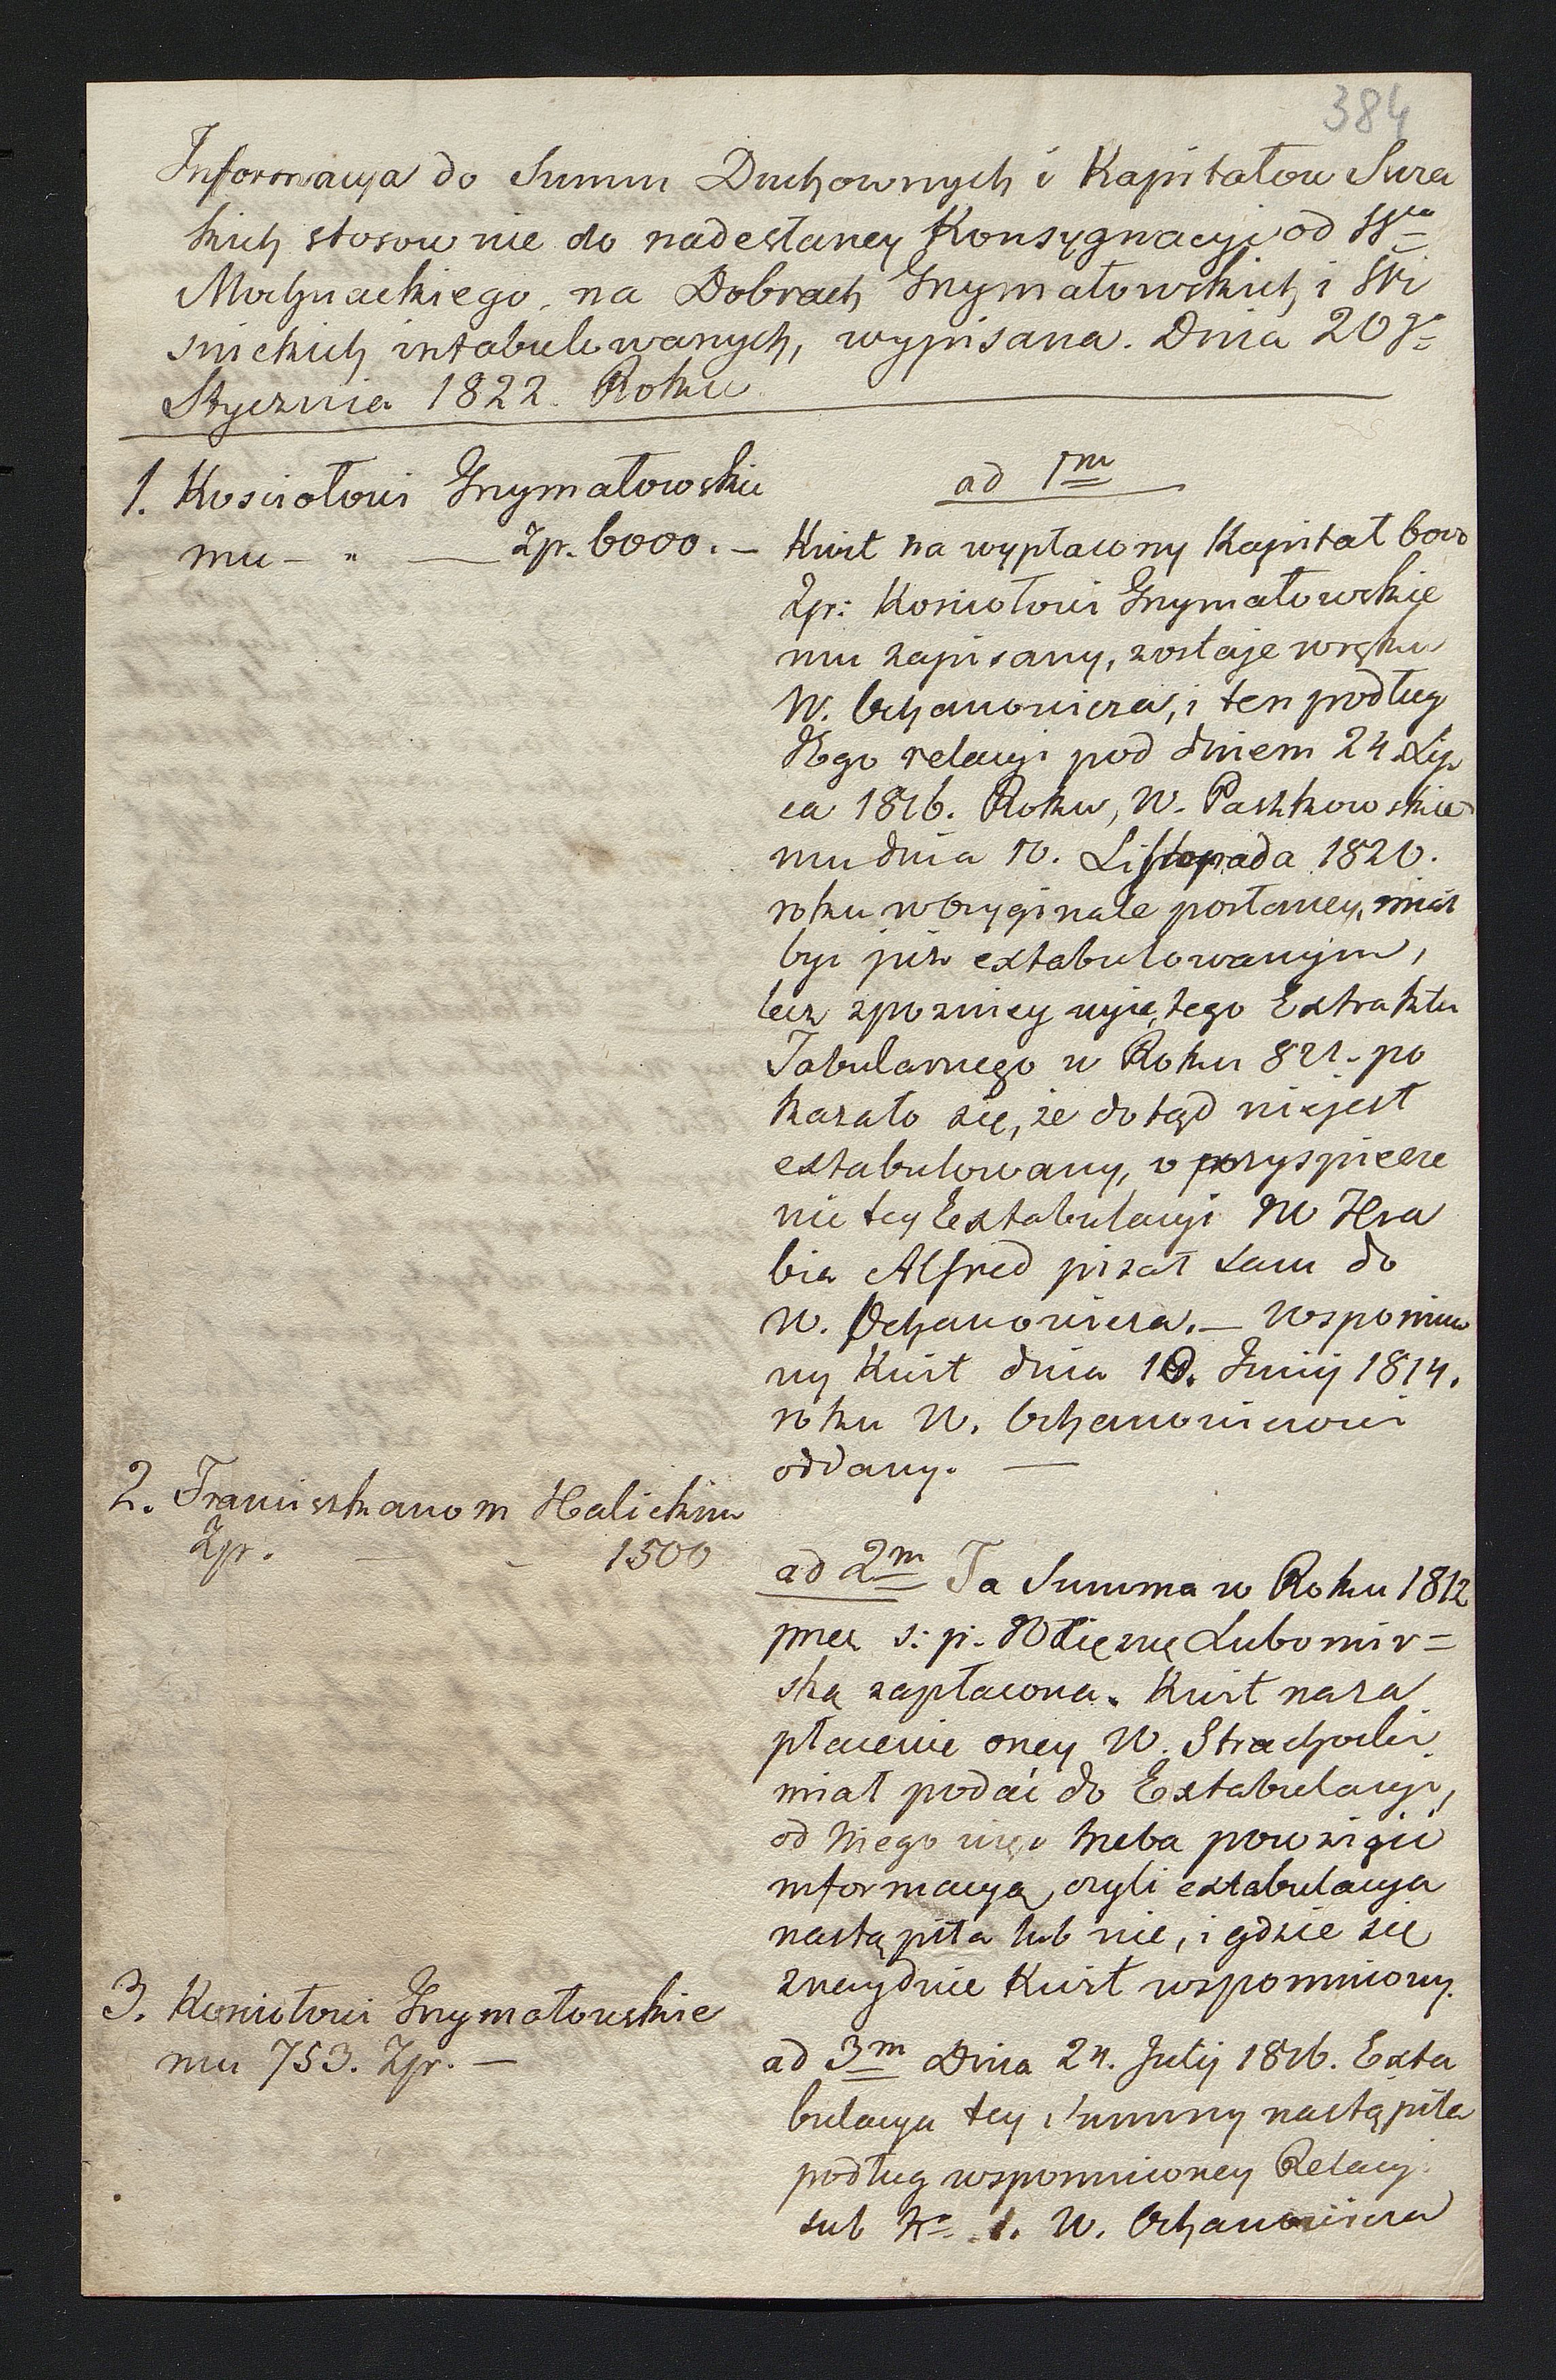 384
Informacya do Summ Duchownych i Kapitałow Sira
kich stosownie do nadesłaney Konsygnacyi od
Mochnackiego, na Dobrach Grzymałowskich i
snickich intabulowanych, wypisana. Dnia 20go
Stycznia 1822. Roku
1. Kościołowi Grzymałowskie
mu - " — Zp. 6000. —
ad 1m
Kwit na wypłacony Kapitał 6000
Zp: Kościołowi Grzymałowskie
mu zapisany, zostaje w ręku
W. Ochanowicza, i ten podług
Jego relacyi pod dniem 24 Lip
ca 1816. Roku, W. Paszkowskie
mu dnia 10. Listopada 1820.
roku w Oryginale posłaney, miał
być już extabulowanym,
lecz z pozniey wyiętego Extraktu
Tabularnego w Roku 821. po
kazało się, że dotąd nie jest
extabulowany, o przyspiesze
nie tey Extabulacyi JW Hra
bia Alfred pisał sam do
W. Ochanowicza. — Wspomnio
ny Kwit dnia 10. Junij 1814.
roku W. Ochanowiczowi
oddany. —
2. Franciszkanom Halickim
Zp. — - 1500
ad 2m Ta Summa w Roku 1812
przez ś: p. Xiężnę Lubomir=
ską zapłacona. Kwit na za
płacenie oney W. Strachocki
miał podać do Extabulacyi,
od niego więc trzeba powziąść
informacyą, czyli extabulacya
nastąpiła lub nie, i gdzie się
znayduie Kwit wspomniony.
3. Kościołowi Grzymałowskie
mu 753. Zp. —
ad 3m Dnia 24. Julij 1816. Exta
bulacya tey Summy nastąpiła
podług wspomnioney Relacyi
sub No 1. W. Ochanowicza